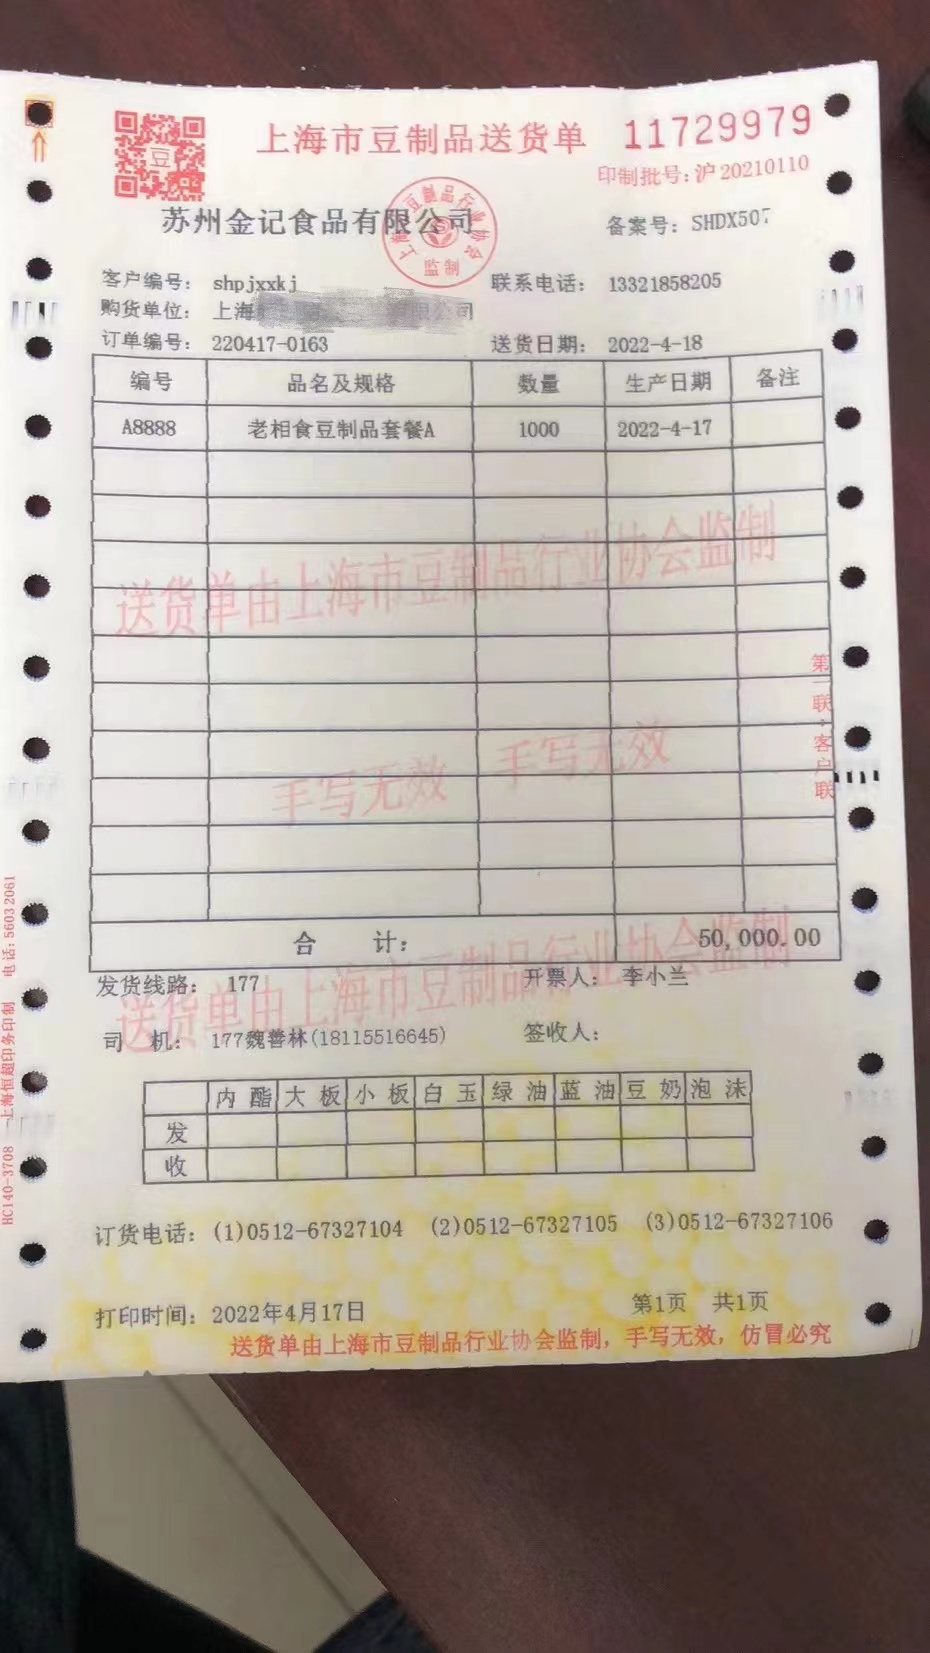 上海市豆制品送货单 11729979
印制批号:沪20210110
豆
苏州金记食品有限公司
备案号: SHDX507
上海市豆制品行业协会
监制
客户编号: shpjxxkj 联系电话: 13321858205
购货单位: 上海 有限公司
订单编号: 220417-0163 送货日期: 2022-4-18
编号 品名及规格 数量 生产日期 备注
A8888 老相食豆制品套餐A 1000 2022-4-17
送货单由上海市豆制品行业协会监制
手写无效 手写无效
第一联:客户联
合 计: 50,000.00
送货单由上海市豆制品行业协会监制
发货线路: 177 开票人: 李小兰
司 机: 177魏善林(18115516645) 签收人:
内酯 大板 小板 白玉 绿油 蓝油 豆奶 泡沫
发
收
订货电话: (1)0512-67327104 (2)0512-67327105 (3)0512-67327106
打印时间: 2022年4月17日 第1页 共1页
送货单由上海市豆制品行业协会监制, 手写无效, 仿冒必究
HC140-3708 上海恒超印务印制 电话:56032061